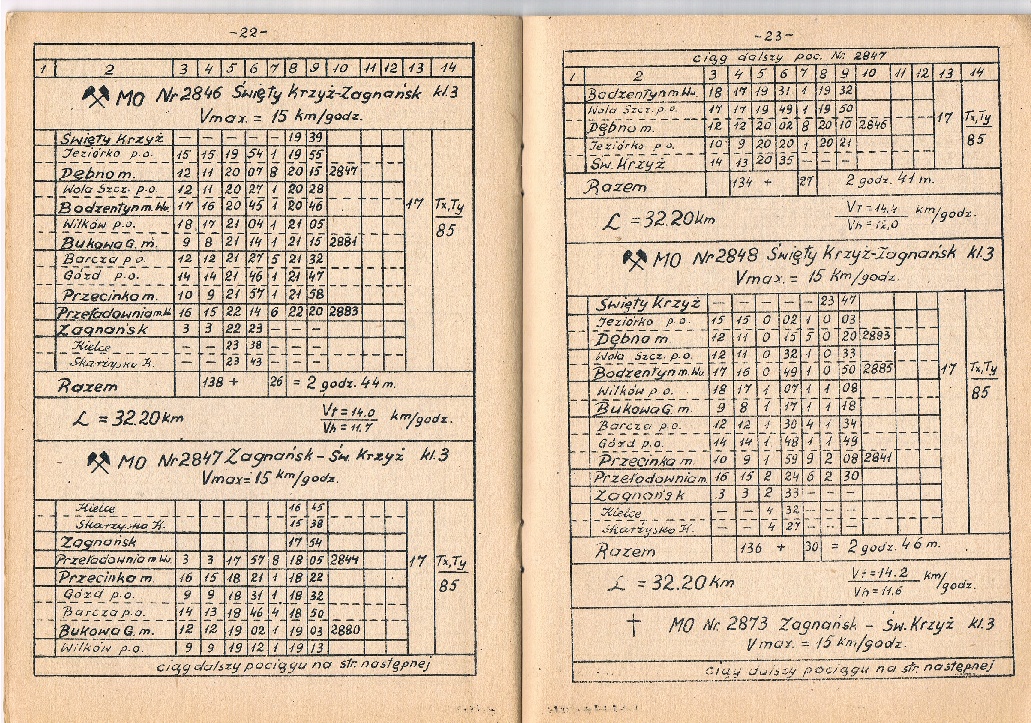 -22-
1 2 3 4 5 6 7 8 9 10 11 12 13 14
MO Nr 2846 Święty Krzyż-Zagnańsk kl.3
Vmax. = 15 km/godz.
Święty Krzyż — — — — — 19 39
Jeziórko p.o. 15 15 19 54 1 19 55
Dębno m. 12 11 20 07 8 20 15 2847
Wola Szcz. p.o. 12 11 20 27 1 20 28
Bodzentyn m.Wu. 17 16 20 45 1 20 46
17 Tx,Ty
Wilków p.o. 18 17 21 04 1 21 05
85
Bukowa G. m. 9 8 21 14 1 21 15 2881
Barcza p.o. 12 12 21 27 5 21 32
Gózd p.o. 14 14 21 46 1 21 47
Przecinka m. 10 9 21 57 1 21 58
Przeładownia m.W. 16 15 22 14 6 22 20 2883
Zagnańsk 3 3 22 23 — — —
Kielce — — 23 38 — — —
Skarżysko K. — — 23 43 — — —
Razem 138 + 26 = 2 godz. 44 m.
L = 32.20 km Vt = 14.0 km/godz.
Vh = 11.7
MO Nr 2847 Zagnańsk - Św. Krzyż kl.3
Vmax = 15 km/godz.
Kielce 16 45
Skarżysko K. 15 38
Zagnańsk 17 54
Przeładownia m.Wu. 3 3 17 57 8 18 05 2844 17 Tx,Ty
Przecinka m. 16 15 18 21 1 18 22
85
Gózd p.o. 9 9 18 31 1 18 32
Barcza p.o. 14 13 18 46 4 18 50
Bukowa G. m. 12 12 19 02 1 19 03 2880
Wilków p.o. 9 9 19 12 1 19 13
ciąg dalszy pociągu na str. następnej
-23-
ciąg dalszy poc. Nr. 2847
1 2 3 4 5 6 7 8 9 10 11 12 13 14
Bodzentyn m.Wu. 18 17 19 31 1 19 32
Wola Szcz. p.o. 17 17 19 49 1 19 50
17 Tx,Ty
Dębno m. 12 12 20 02 8 20 10 2846
85
Jeziórko p.o. 10 9 20 20 1 20 21
Św. Krzyż 14 13 20 35 — — —
Razem 134 + 27 2 godz. 41 m.
L = 32.20 km Vt = 14.4 km/godz.
Vh = 12,0
MO Nr 2848 Święty Krzyż-Zagnańsk kl.3
Vmax = 15 km/godz.
Święty Krzyż — — — — — 23 47
Jeziórko p.o. 15 15 0 02 1 0 03
Dębno m. 12 11 0 15 5 0 20 2893
Wola Szcz. p.o. 12 11 0 32 1 0 33
Bodzentyn m.Wu. 17 16 0 49 1 0 50 2885 17 Tx,Ty
Wilków p.o. 18 17 1 07 1 1 08
85
Bukowa G. m. 9 8 1 17 1 1 18
Barcza p.o. 12 12 1 30 4 1 34
Gózd p.o. 14 14 1 48 1 1 49
Przecinka m. 10 9 1 59 9 2 08 2841
Przeładownia m. 16 15 2 24 6 2 30
Zagnańsk 3 3 2 33 — — —
Kielce 4 32 — — —
Skarżysko K. 4 27 — — —
Razem 136 + 30 = 2 godz. 46 m.
L = 32.20 km Vt = 14.2 km/godz.
Vh = 11.6
MO Nr. 2873 Zagnańsk - Św. Krzyż kl.3
Vmax. = 15 km/godz.
ciąg dalszy pociągu na str. następnej